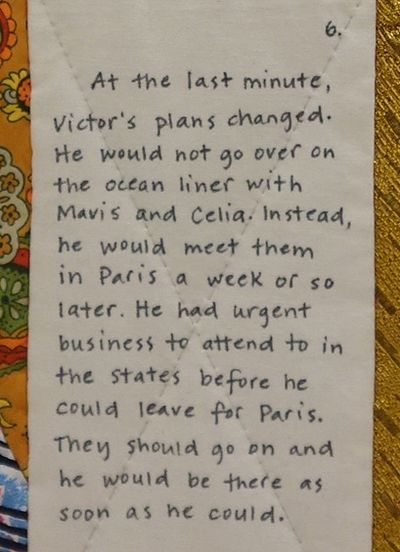 6.
At the last minute,
Victor's plans changed.
He would not go over on
the ocean liner with
Mavis and Celia. Instead,
he would meet them
in Paris a week or so
later. He had urgent
business to attend to in
the states before he
could leave for Paris.
They should go on and
he would be there as
soon as he could.